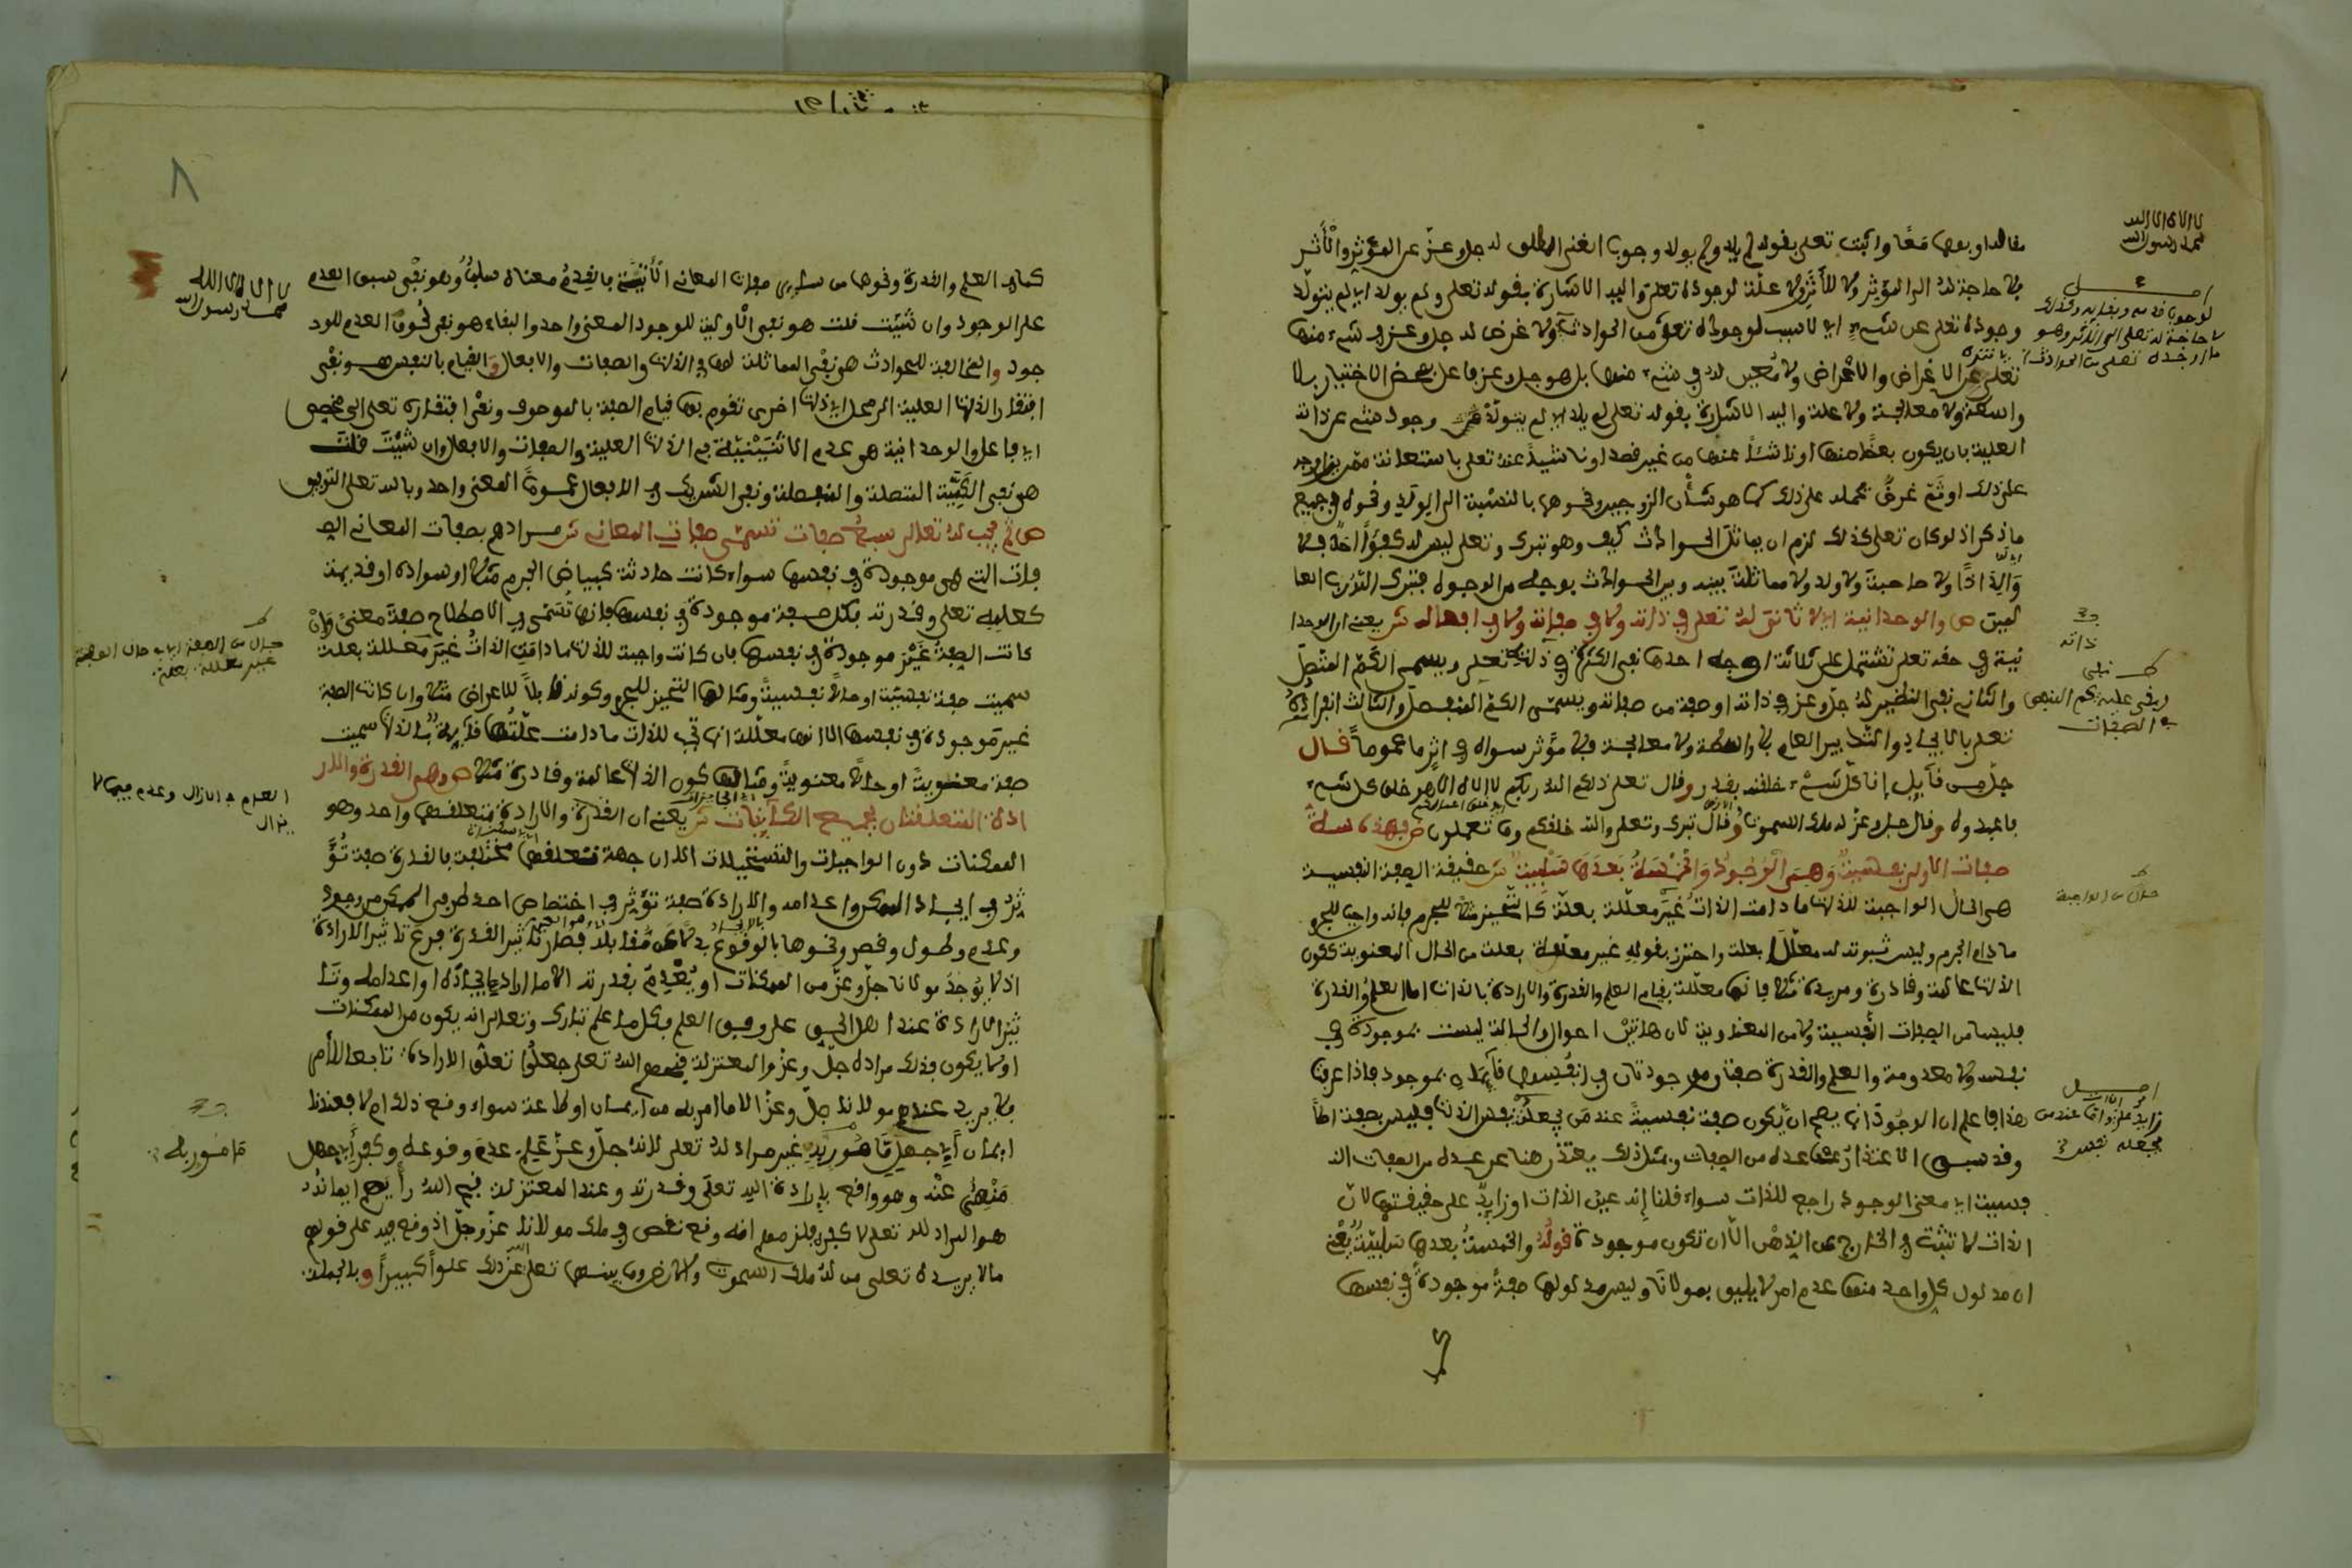 لا اله الا الله
محمد رسول الله
مقالها وبعها معًا واثبت تعلى بقوله لم يلد ولم يولد وجوب الغنى المطلق له جل وعز عن المؤثر والأثر
فلا حاجة له الى المؤثر ولا للأثر ولا علة لوجوده تعلى واليه الاشارة بقوله تعلى ولم يولد اي لم يتولد
وجوده تعلى عن شيء اي لا سبب لوجوده تعلى من الحوادث ولا غرض له جل وعز في شيء منها
تعلى عن الاغراض والاعراض ولا معين له في شيء منها بل هو جل وعز فاعل بمحض الاختيار بلا
واسطة ولا معالجة ولا علة واليه الاشارة بقوله تعلى لم يلد اي لم يتولد وجود شيء عن ذاته
العلية بان يكون بعضا منها او ناشئا عنها من غير قصد او ناشيا عنه تعلى باستعانة ممن يزاوجه
على ذلك او ثم غرض يحمله على ذلك كما هو شأن الزوجين ونحوها بالنسبة الى الولد ونحوه في جميع
ما ذكر اذ لو كان تعلى كذلك لزم ان يماثل الحوادث كيف وهو تبرك وتعلى ليس له كفؤا احد فلا
والد اذًا ولا صاحبة ولا ولد ولا مماثلة بينه وبين الحوادث بوجه من الوجوه فتبرك الله رب العا
لمين ص والوحدانية اي لا ثاني له تعلى في ذاته ولا في صفاته ولا في افعاله ش يعني ان الوحدا
نية في حقه تعلى تشتمل على ثلاثة اوجه احدها نفي الكثرة في ذاته تعلى ويسمى الكم المتصل
والثاني نفي النظير له جل وعز في ذاته او صفة من صفاته ويسمى الكم المنفصل والثالث انفراده
تعلى بالايجاد والتدبير العام بلا واسطة ولا معالجة فلا مؤثر سواه في اثر ما عموما قال
جل من قائل إنا كل شيء خلقنه بقدر وقال تعلى ذلكم الله ربكم لا اله الا هو خلق كل شيء
فاعبدوه وقال جل وعز له ملك السموت وقال تبرك وتعلى والله خلقكم وما تعملون ص فهذه ستة
صفات الاولى نفسية وهي الوجود والخمسة بعدها سلبية ش حقيقة الصفة النفسية
هي الحال الواجبة للذات ما دامت الذات غير معللة بعلة كالتحيز مثلا للجرم فانه واجب للجرم
ما دام الجرم وليس ثبوته له معللا بعلة واحترز بقوله غير معللة بعلة من الحال المعنوية ككون
الذات عالمة وقادرة ومريدة مثلا فانها معللة بقيام العلم والقدرة والارادة بالذات اما العلم والقدرة
فليسا من الصفات النفسية ولا من المعنوية لان هاتين احوال والحال ليست بموجودة في
نفسه ولا معدومة والعلم والقدرة صفتان موجودتان في انفسهما قائمة بموجود فاذا عرفت
هذا فاعلم ان الوجود انما يصح ان يكون صفة نفسية عند من يجعله نفس الذات فليس بصفة اصلا
وقد سبق الاعتذار عن عده من الصفات ومثل ذلك يعتذر هنا عن عده من الصفات النـ
ـفسية اي معنى الوجود راجع للذات سواء قلنا إنه عين الذات او زايد على حقيقتها لان
الذات لا تثبت في الخارج عن الذهن الا ان تكون موجودة قوله والخمسة بعدها سلبية يعني
ان مدلول كل واحد منها عدم امر لا يليق بمولانا وليس مدلولها صفة موجودة في نفسها
ذاته
في الصفات
لا اله الا الله
محمد رسول الله
كما في العلم والقدرة ونحوها من سائر صفات المعاني الاتية فالقدم معناه سلب وهو نفي سبق العدم
على الوجود وان شئت قلت هو نفي الاولية للوجود المعنى واحد والبقاء هو نفي لحوق العدم للو
جود والمخالفة للحوادث هي نفي المماثلة لها في الذات والصفات والافعال والقيام بالنفس هو نفي
افتقار الذات العلية الى محل اي ذات اخرى تقوم بها قيام الصفة بالموصوف ونفي افتقاره تعلى الى مخصص
اي فاعل والوحدانية هي عدم الاثنينية في الذات العلية والصفات والافعال وان شئت قلت
هي نفي الكمية المتصلة والمنفصلة ونفي الشريك في الافعال عموما المعنى واحد وبالله تعلى التوفيق
ص ثم يجب له تعالى سبع صفات تسمى صفات المعاني ش مرادهم بصفات المعاني الصـ
ـفات التي هي موجودة في نفسها سواء كانت حادثة كبياض الجرم مثلا او سواده او قديمة
كعلمه تعلى وقدرته فكل صفة موجودة في نفسها فانها تسمى في الاصطلاح صفة معنى وان
كانت الصفة غير موجودة في نفسها فان كانت واجبة للذات ما دامت الذات غير معللة بعلة
سميت صفة نفسية او حالا نفسية ومثالها التحيز للجرم وكونه قابلا للاعراض مثلا وان كانت الصفة
غير موجودة في نفسها الا انها معللة انما تجب للذات ما دامت علتها قائمة بالذات سميت
صفة معنوية او حالا معنوية ومثالها كون الذات عالمة وقادرة مثلا ص وهي القدرة والار
ادة المتعلقتان بجميع الكائنات ش يعني ان القدرة والارادة متعلقهما واحد وهو
الممكنات دون الواجبات والمستحيلات الا ان جهة تعلقهما مختلفة فالقدرة صفة تؤ
ثر في ايجاد الممكن واعدامه والارادة صفة تؤثر في اختصاص احد طرفي الممكن من وجود
وعدم وطول وقصر ونحوها بالوقوع بدلا عن مقابله فصار تأثير القدرة فرع تاثير الارادة
اذ لا يوجد مولانا جل وعز من الممكنات او يعدم بقدرته الا ما اراد ايجاده او اعدامه وتا
ثير الارادة عند اهل الحق على وفق العلم فكل ما علم تبارك وتعالى انه يكون من الممكنات
او لا يكون فذلك مراده جل وعز والمعتزلة قبحهم الله تعلى جعلوا تعلق الارادة تابعا للأمر
فلا يريد عندهم مولانا جل وعز الا ما امر به من ايمان او طاعة سواء وقع ذلك ام لا فعندنا
ايمان أبي جهل مامور به غير مراد له تعلى لانه جل وعز علم عدم وقوعه وكفر أبي جهل
منهي عنه وهو واقع بإرادة الله تعلى وقدرته وعند المعتزلة قبح الله رأيهم ايمانه
هو المراد لله تعلى لا كفره فلزمهم انه وقع نقص في ملك مولانا عز وجل اذ وقع فيه على قولهم
ما لا يريده تعلى من له ملك السموت والارض وما بينهما تعلى عن ذلك علوا كبيرا وبالجملة
العدم في الازل وعدم فيما لا
يزال
مامور به
٨